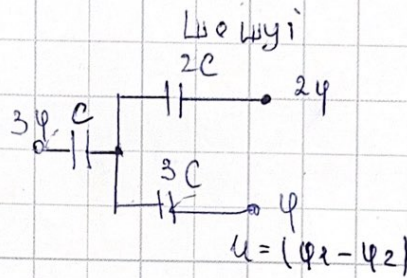 Шешуі
2C
2φ
3φ C
3C
φ
U = (φ1 − φ2)